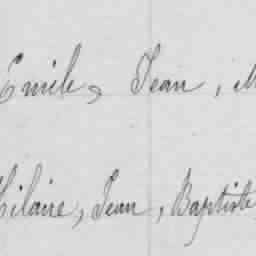 Emile, Jean, M
Hilaire, Jean, Baptiste